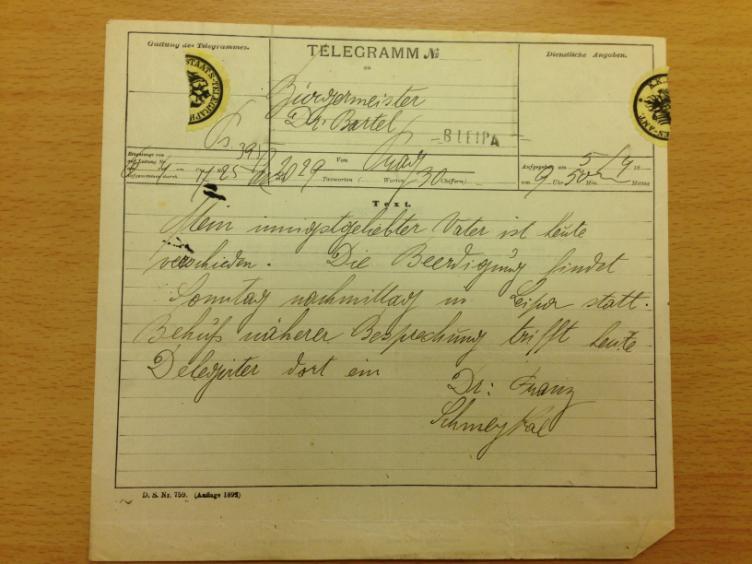 Gattung des Telegrammes.
TELEGRAMM №
an
Dienstliche Angaben.
Bürgermeister
Dr: Bartel
B LEIPA
Von
Taxworten
Worten
30
(Chiffern)
Aufgegeben am 5/4
um 9 Uhr 50 Min.
Text.
Mein innigstgeliebter Vater ist heute
verschieden. Die Beerdigung findet
Sonntag nachmittag in Leipa statt.
Behufs näherer Besprechung trifft heute
Delegirter dort ein
Dr: Franz
Schmeykal
D. S. Nr. 759. (Auflage 1892)